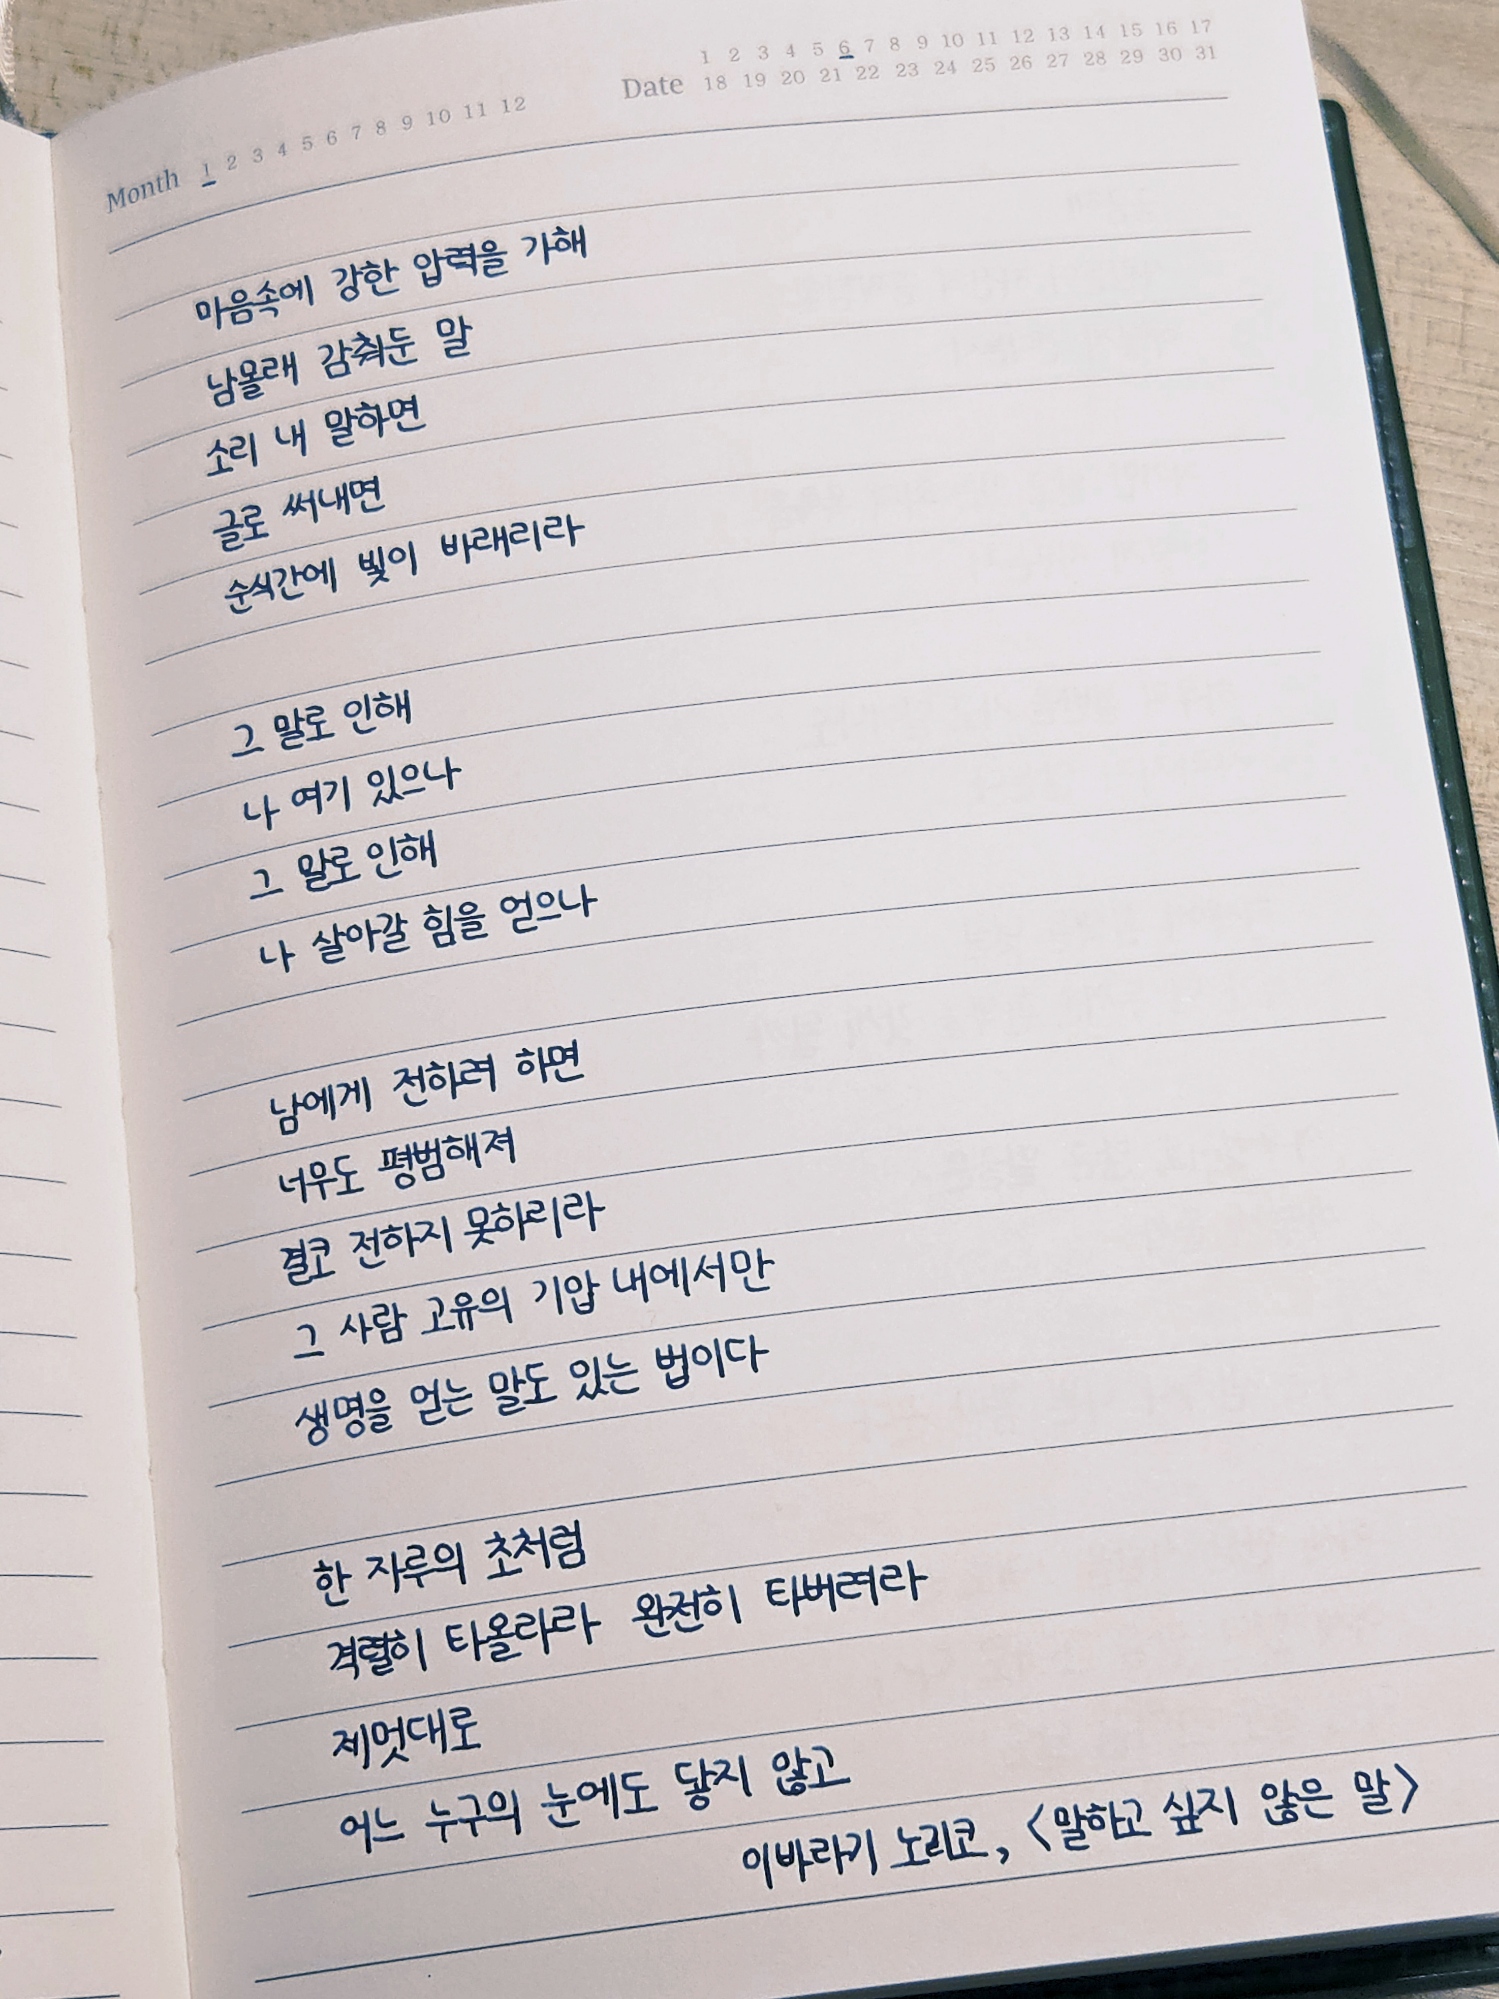 Month 1 2 3 4 5 6 7 8 9 10 11 12
Date 1 2 3 4 5 6 7 8 9 10 11 12 13 14 15 16 17
18 19 20 21 22 23 24 25 26 27 28 29 30 31
마음속에 강한 압력을 가해
남몰래 감춰둔 말
소리 내 말하면
글로 써내면
순식간에 빛이 바래리라
그 말로 인해
나 여기 있으나
그 말로 인해
나 살아갈 힘을 얻으나
남에게 전하려 하면
너무도 평범해져
결코 전하지 못하리라
그 사람 고유의 기압 내에서만
생명을 얻는 말도 있는 법이다
한 자루의 초처럼
격렬히 타올라라 완전히 타버려라
제멋대로
어느 누구의 눈에도 닿지 않고
이바라기 노리코, <말하고 싶지 않은 말>